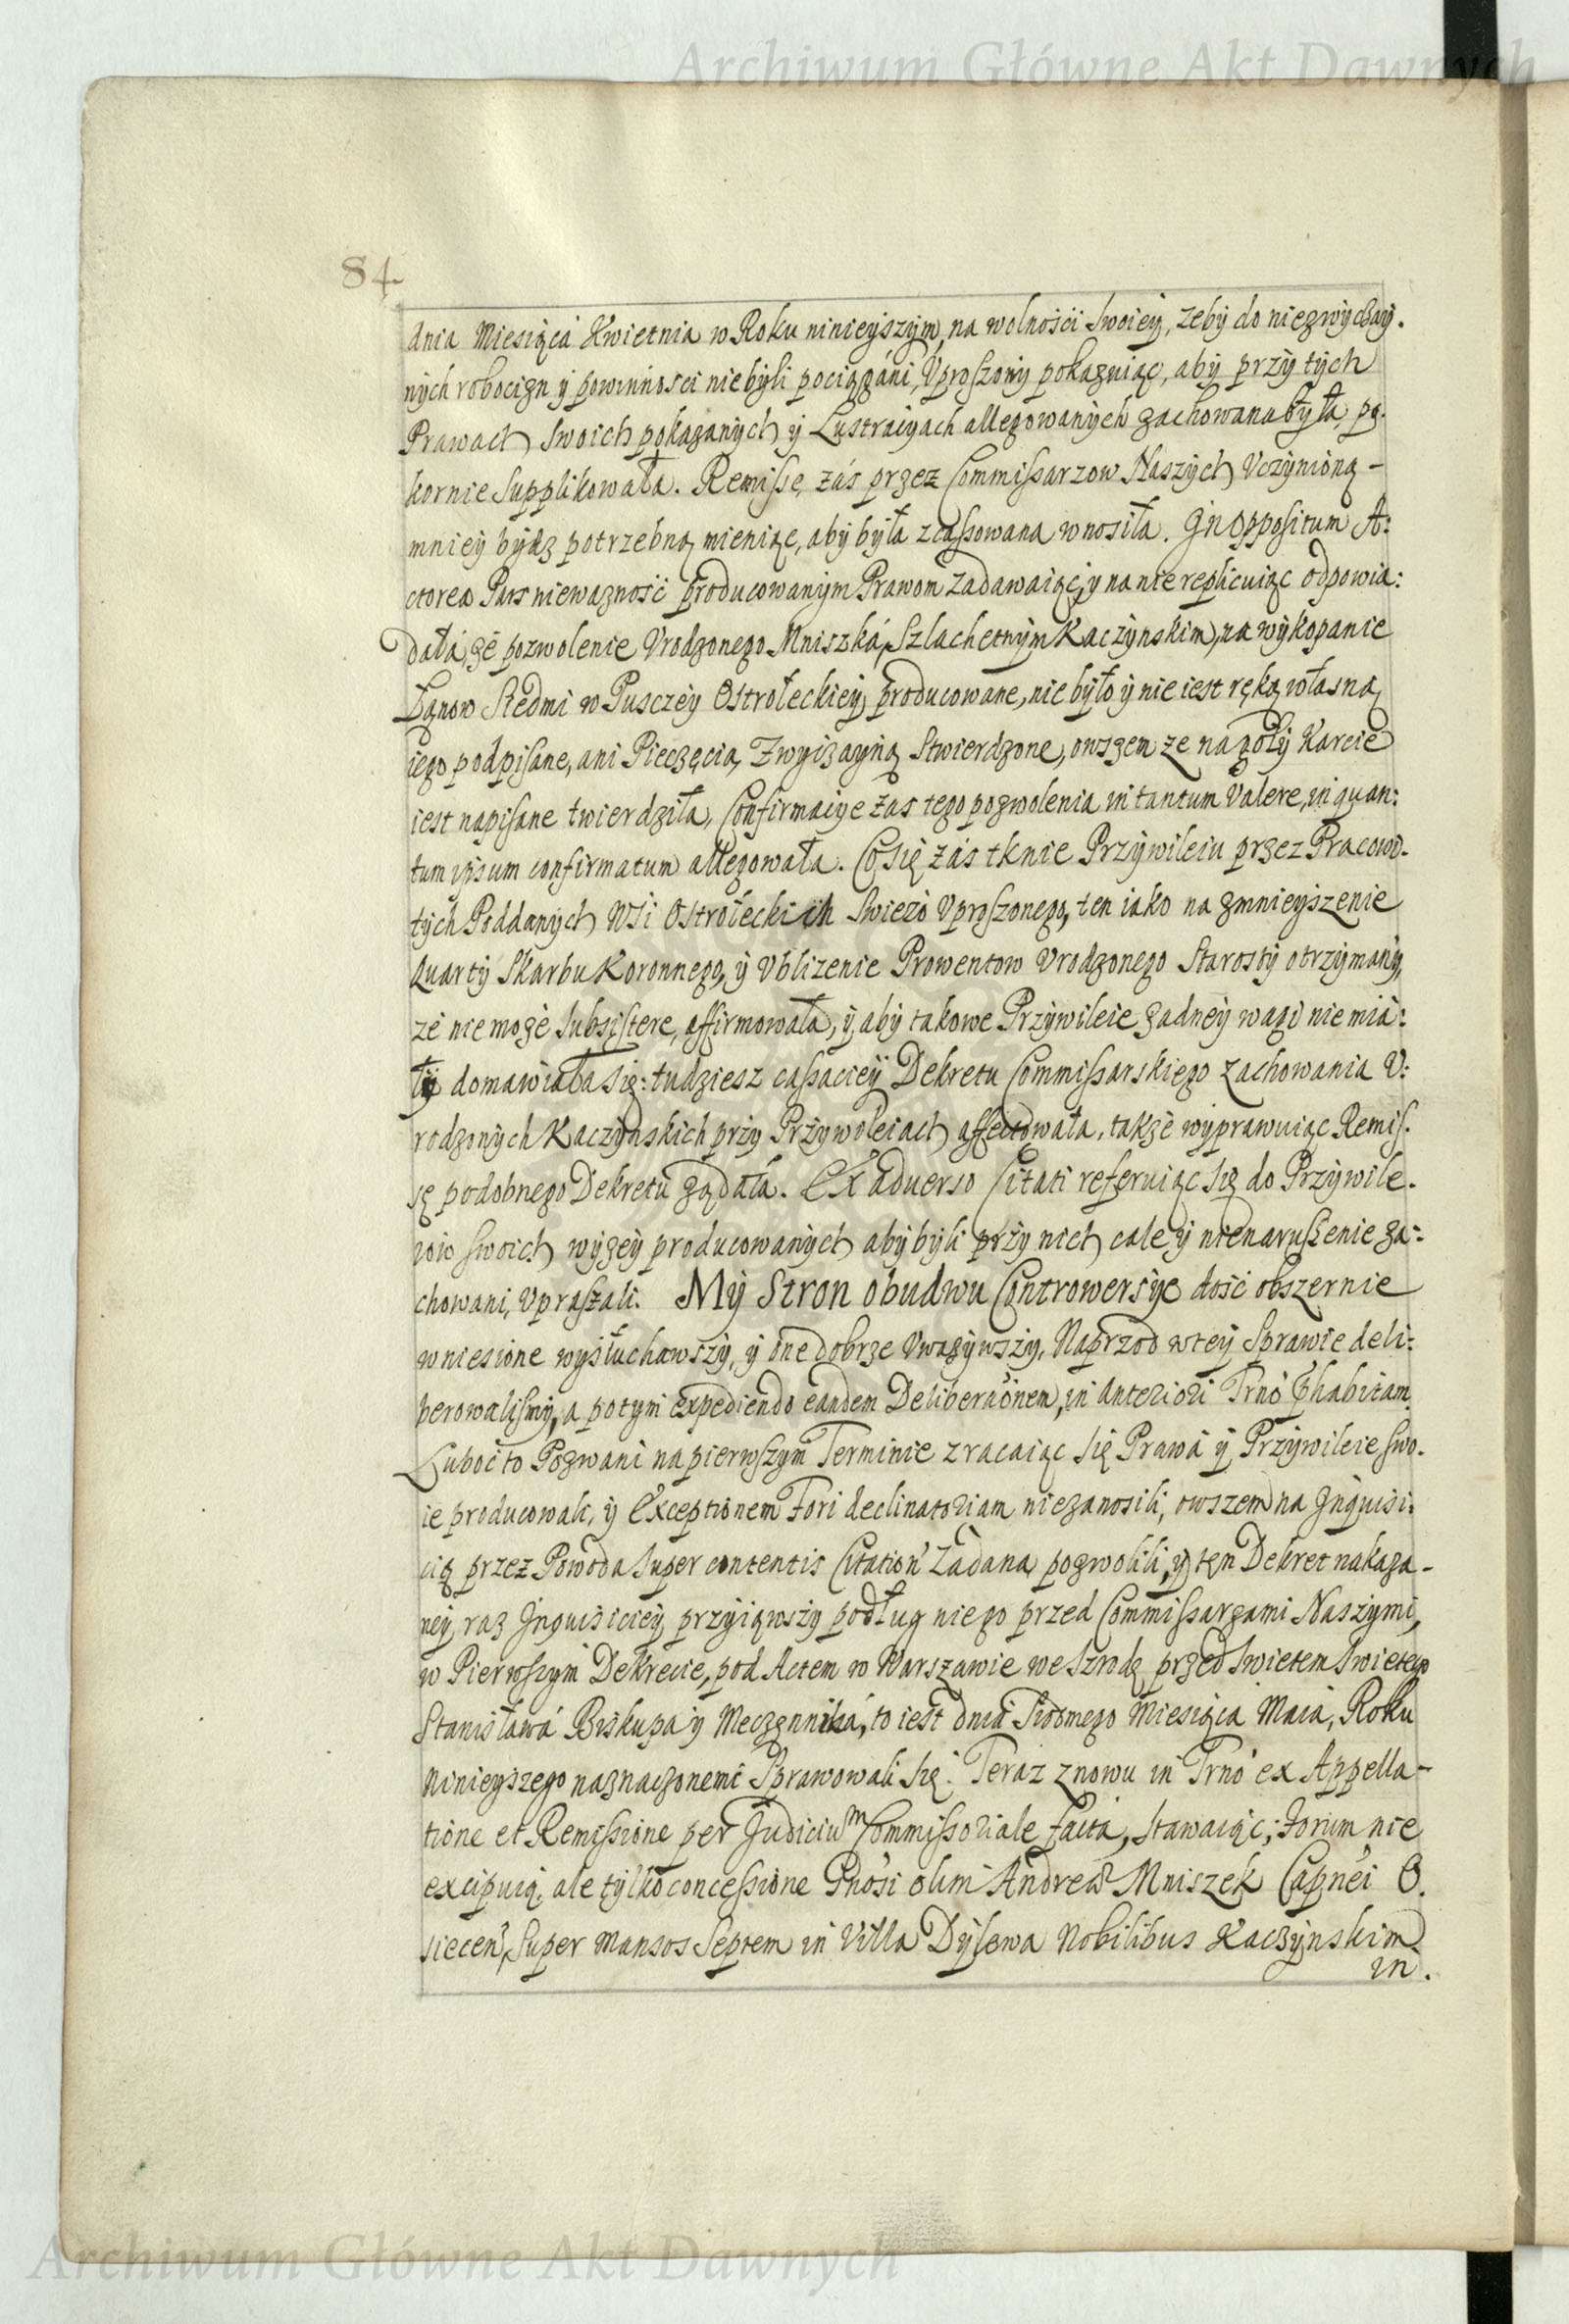 Archiwum Główne Akt Dawnych
84
dnia Miesiąca Kwietnia w Roku ninieyszym, na wolności swoiey, żeby do niezwyczay.
nych robocizn y powinności niebyli pociągáni, Vproszony pokazuiąc, aby przy tych
Prawach swoich pokazanych y Lustracyach allegowanych zachowana była, po.
kornie supplikowała. Remissę zás przez Commissarzow Naszych Vczynioną -
mniey bydz potrzebną mieniąc, aby była zcassowana wnosiła. Jn Oppositum A:
ctorea Pars nieważność producowanym Prawom zadawaiąc, y na nie replicuiąc odpowia:
dała, że pozwolenie Vrodzonego Mniszká, Szlachetnym Kaczynskim, na wykopanie
Łanow Siedmi w Pusczey Ostrołeckiey producowane, nie było y nie iest ręką własną
iego podpisane, ani Pieczęcią Zwyczayną stwierdzone, owszem ze na goły Karcie
iest napisane twierdziła, Confirmacye zas tego pozwolenia in tantum Valere, in quan:
tum ipsum confirmatum allegowała. Co się zás tknie Przywileiu przez Pracowi-
tych Poddanych Wsi Ostrołeckich swieżo Vproszonego, ten iako na zmnieyszenie
Quarty Skarbu Koronnego, y Vblizenie Prowentow Vrodzonego Starosty otrzymany,
że nie może subsistere, affirmowała, y aby takowe Przywileie żadney wagi nie mia:
ły domawiała się: tudziesz cassaciey Dekretu Commissarskiego zachowania V:
rodzonych Kaczynskich przy Przywileiach affectowała, także wyprawuiąc Remis.
sę podobnego Dekretu żądała. Ex aduerso Citati referuiąc się do Przywile.
iow swoich wyżey producowanych aby byli przy nich cale y nienaruszenie za:
chowani, Vpraszali. My Stron obudwu Controwersye dość obszernie
wniesione wysłuchawszy, y one dobrze Vważywszy, Naprzod w tey Sprawie deli:
berowaliśmy, a potym expediendo eandem Deliberaõnem, in Anteriori Trnõ habitam.
Luboć to Pozwani na pierwszym Terminie zracaiąc się Prawa y Przywileie swo.
ie producowali, y Exceptionem Fori declinatoriam niezanosili, owszem na Jnquisi.
cią przez Powoda super contentis Citation zadana pozwolili, y ten Dekret nakaza-
ney raz Jnquisiciey przyiąwszy podług niego przed Commissarzami Naszymi,
w Pierwszym Dekrecie, pod Actem w Warszawie we Szrodę przed Swietem Swietego
Stanisława Biskupa y Meczęnniká, to iest dnia Siodmego Miesiąca Maia, Roku
ninieyszego naznaczonemi Sprawowali się. Teraz znowu in Trnõ ex Appella-
tione et Remissione per Judicium Commissoriale facta, stawaiąc, Forum nie
excipuią, ale tylko concessione Gnosi olim Andreæ Mniszek Capnei O.
siecen, super mansos Septem in Villa Dylewa Nobilibus Kaczynskim
in.
Archiwum Główne Akt Dawnych